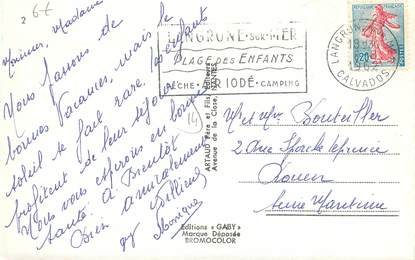 2 6€
Monsieur, Madame
Nous passons de
bonnes vacances, mais le
soleil se fait rare. les enfants
profitent de leur séjour
Nous vous espérons en bonne
santé. à Bientôt
Bien amicalement
Monique
LANGRUNE-SUR-MER
PLAGE DES ENFANTS
PÊCHE-AIR IODÉ-CAMPING
LANGRUNE
CALVADOS
0,20
14
ARTAUD Père et Fils, Éditeurs
Avenue de la Close, NANTES
Mr et Mme Bouteiller
2 Rue
Rouen
Seine Maritime
Editions « GABY »
Marque Déposée
BROMOCOLOR